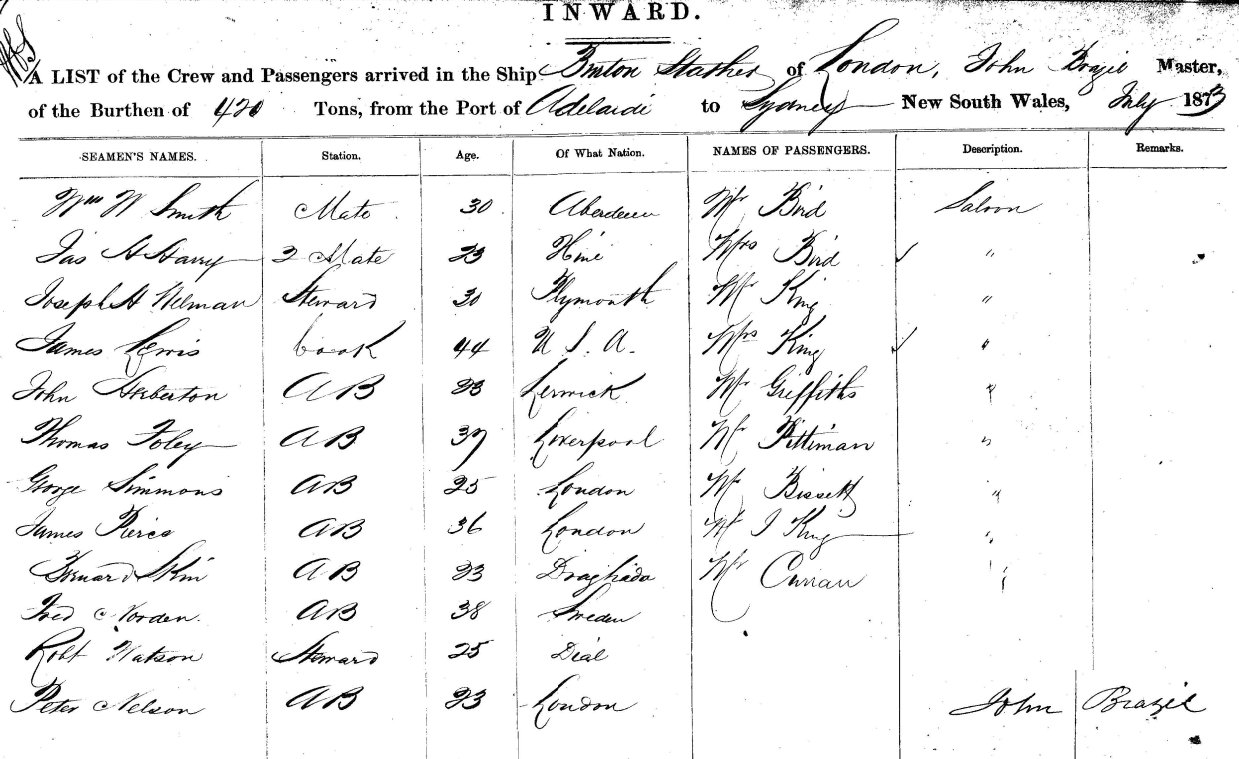 INWARD.
A LIST of the Crew and Passengers arrived in the Ship of London, John Brazil Master,
of the Burthen of 420 Tons, from the Port of Adelaide to Sydney New South Wales, July 1873
SEAMEN'S NAMES. Station. Age. Of What Nation. NAMES OF PASSENGERS. Description. Remarks.
Wm W Smith Mate 30 Aberdeen Mr Bird Saloon
Jas H Harry 2 Mate 23 Mrs Bird "
Joseph H Welman Steward 30 Plymouth Mr King "
James Lewis Cook 44 U.S.A. Mrs King "
John AB 23 Lerwick Mr Griffiths "
Thomas Foley AB 37 Liverpool Mr Pittiman "
George Simmons AB 25 London Mr Bissett "
James Pierce AB 36 London Mr J King "
Bernard Skin AB 23 Droghada Mr Curran "
Fred Norden. AB 38 Sweden
Robt Watson Steward 25 Deal
Peter Nelson AB 23 London John Brazil